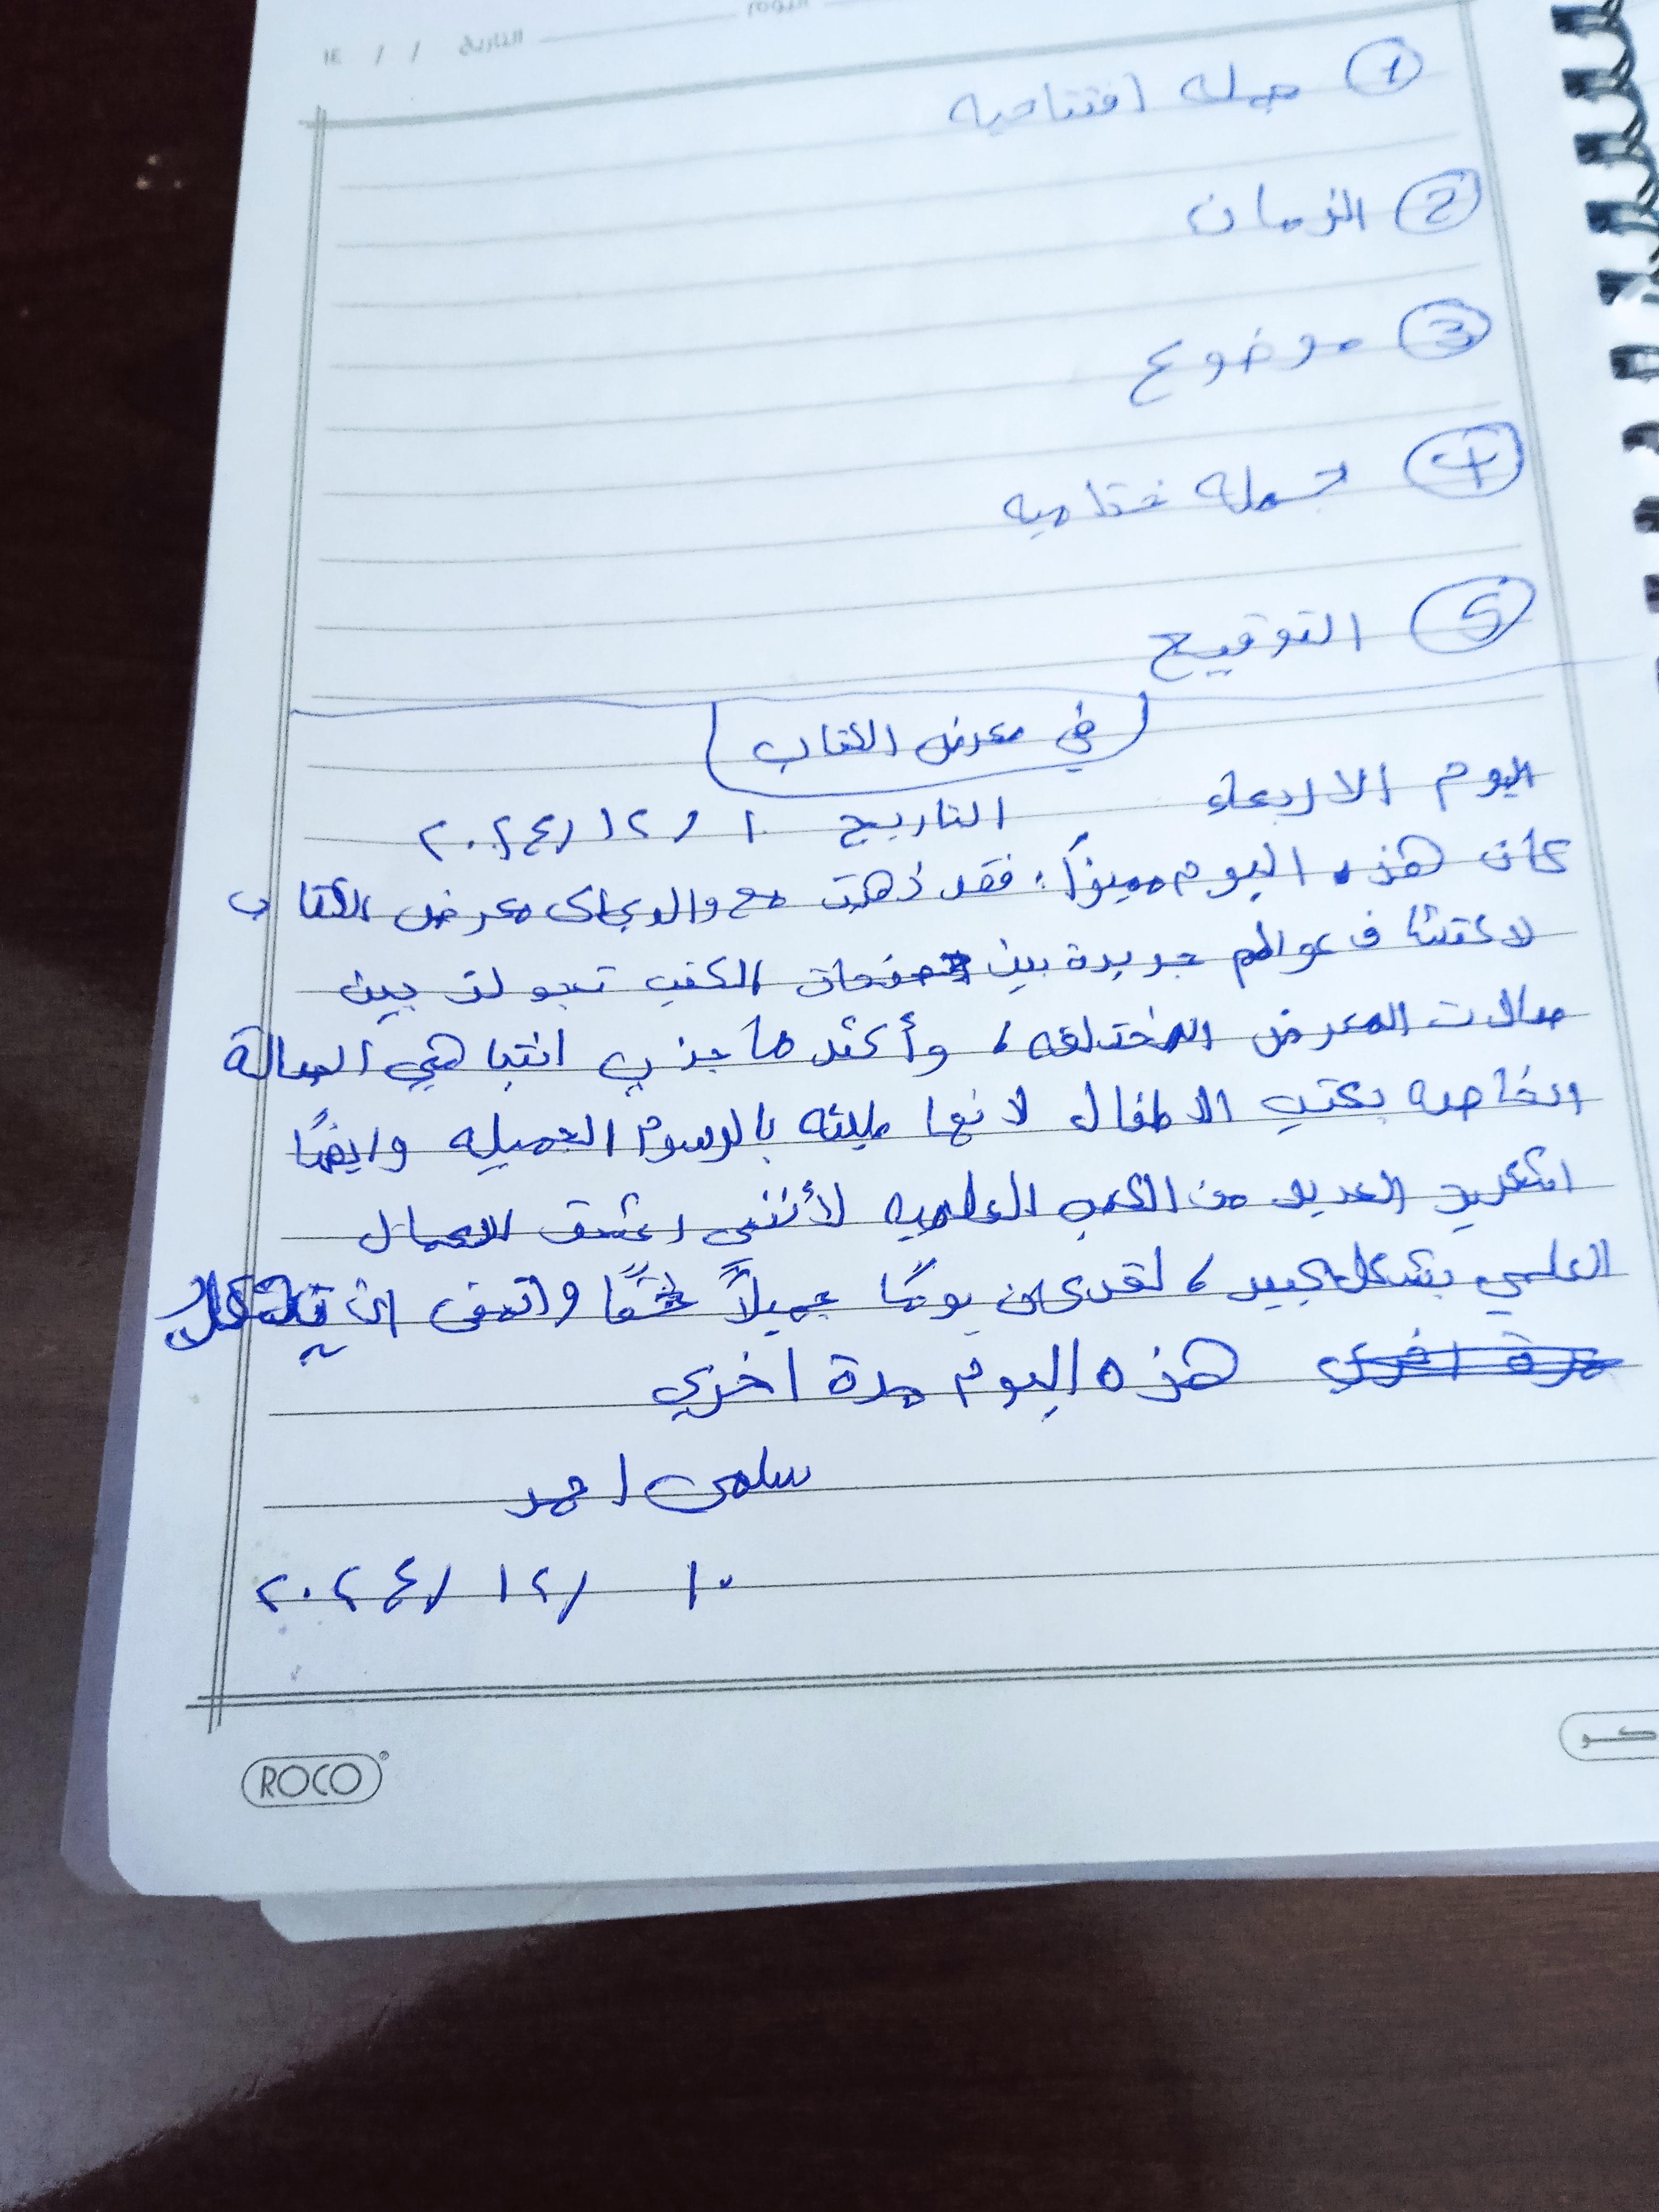 اليوم
التاريخ / / ١٤
1 جمله افتتاحيه
2 الزمان
3 موضوع
4 جمله ختاميه
5 التوقيع
في معرض الكتاب
اليوم الاربعاء التاريخ ١٠ / ١٢ / ٢٠٢٤
كان هذه اليوم مميزاً، فقد ذهبت مع والدي الى معرض الكتاب
لاكتشاف عوالم جديدة بين صفحات الكتب تجولت بين
صالات المعرض المختلفه، وأكثر ما جذب انتباهي الصالة
الخاصه بكتب الاطفال لانها مليئه بالرسوم الجميله وايضًا
اشتريت العديد من الكتب العلميه لأنني اعشق المجال
العلمي بشكل كبير، لقد كان يومًا جميلاً حقًا واتمنى ان يتكرر
هذه اليوم مرة اخرى
سلمى احمد
١٠ / ١٢ / ٢٠٢٤
ROCO